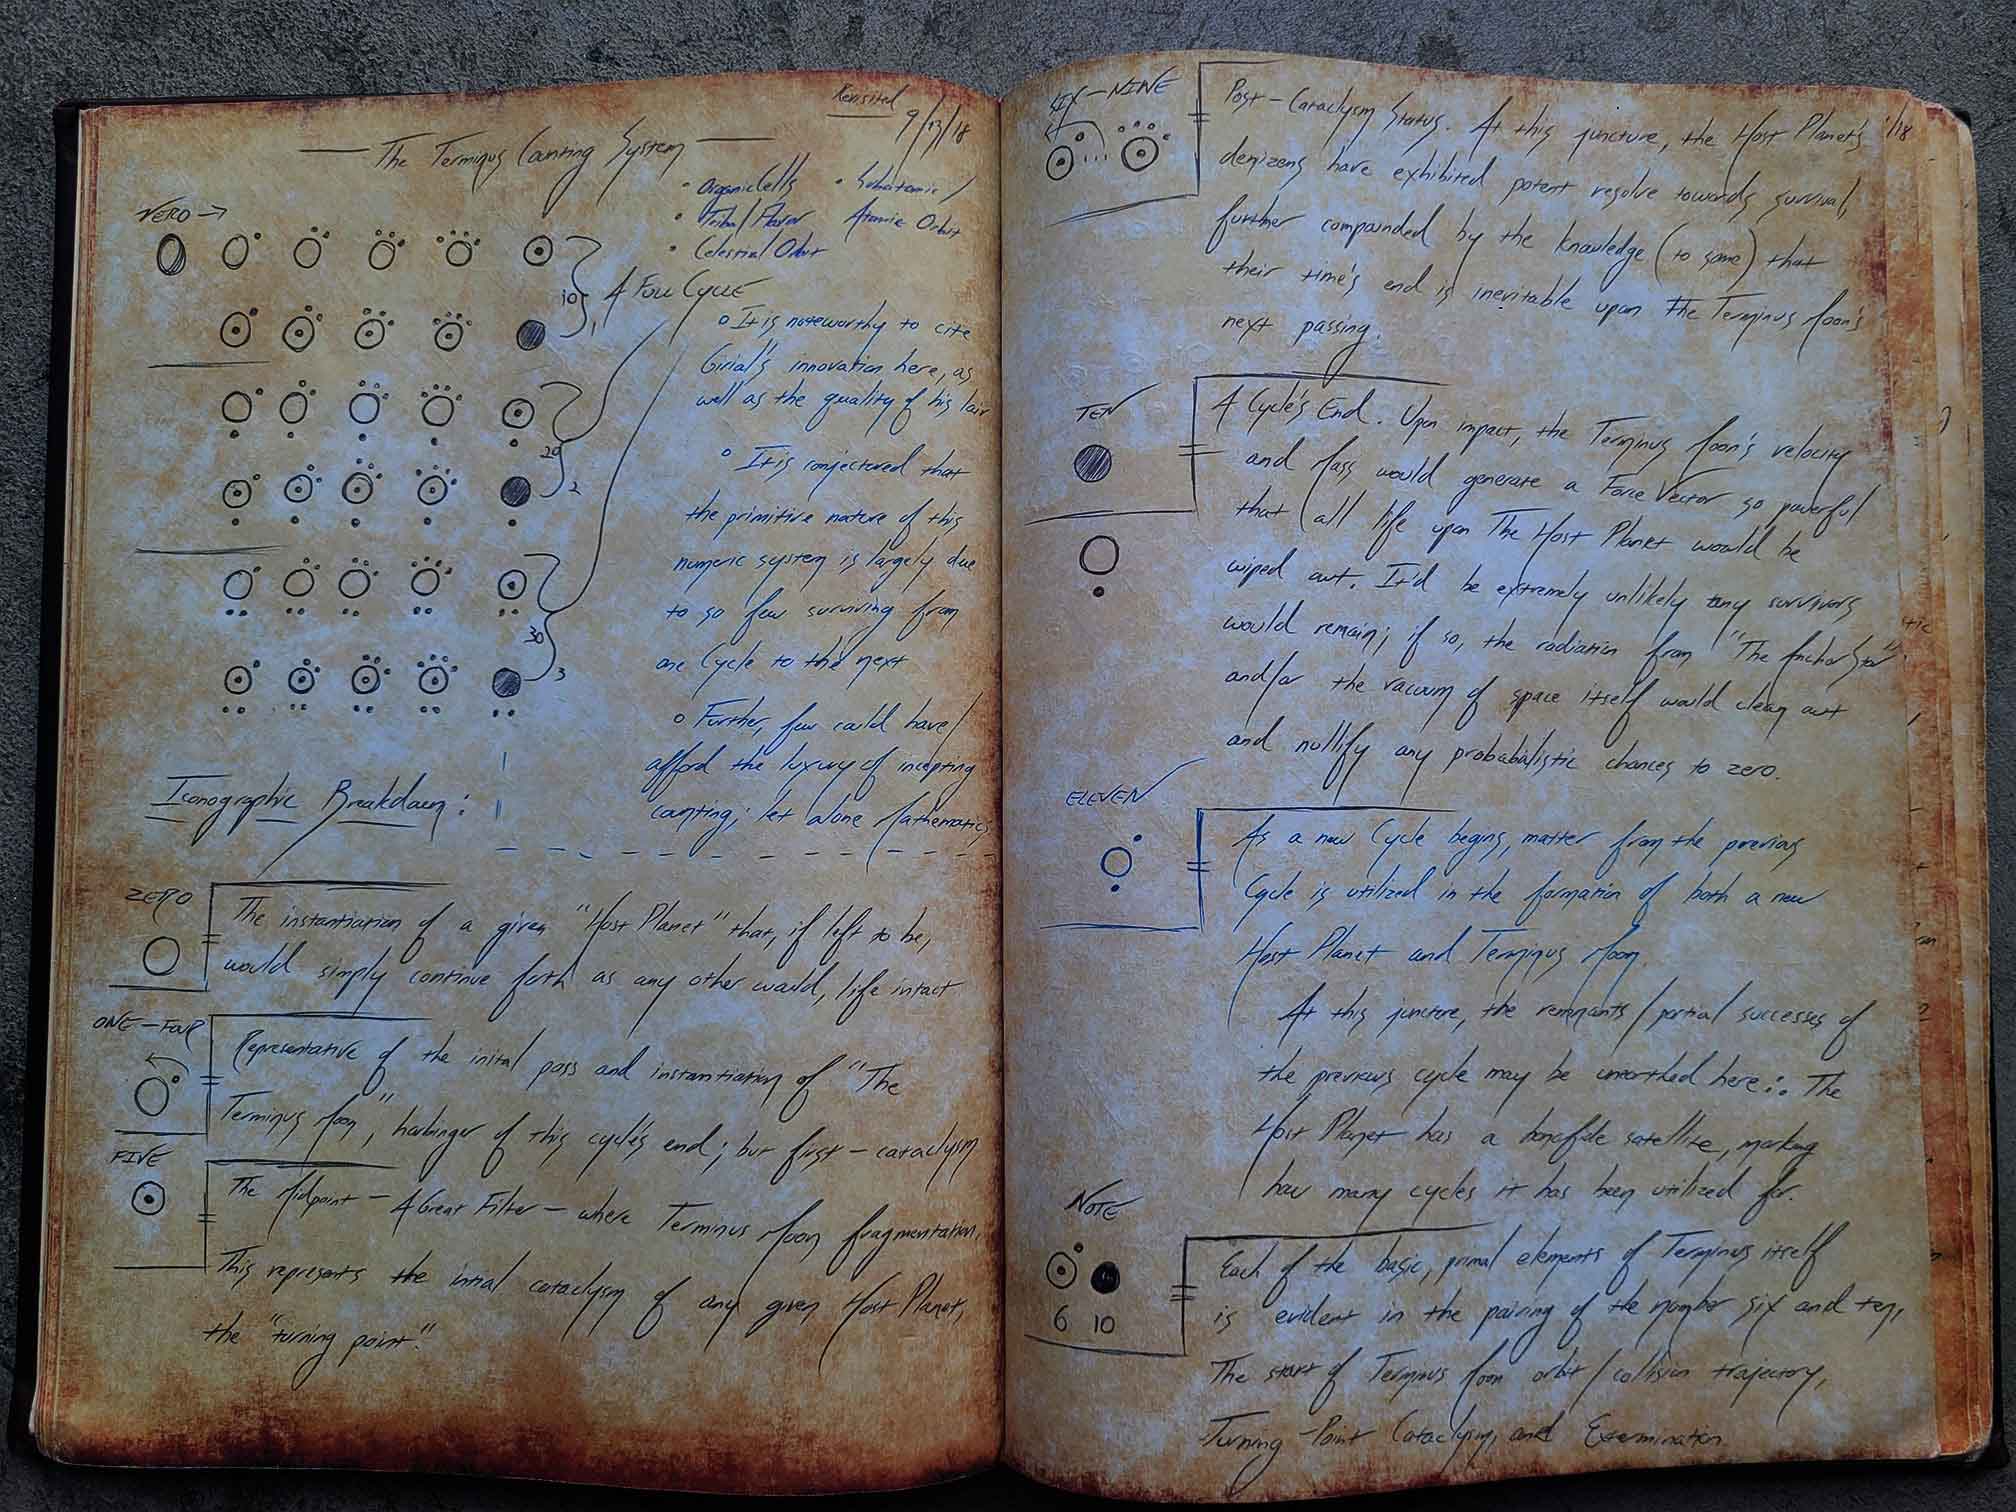 Revisited
9/13/18
The Terminus Counting System
• Organic Cells • Subatomic/
• Tribal Flavor Atomic Orbit
• Celestial Orbit
ZERO →
10
1
A FULL CYCLE
o It is noteworthy to cite
Girial's innovation here, as
well as the quality of his lair
20
2
o It is conjectured that
the primitive nature of this
numeric system is largely due
to so few surviving from
one Cycle to the next
30
3
o Further, few could have/
afford the luxury of incepting
counting; let alone Mathematics
Iconographic Breakdown:
ZERO
The instantiation of a given "Host Planet" that, if left to be,
would simply continue forth as any other world, life intact
ONE-FOUR
Representative of the inital pass and instantiation of "The
Terminus Moon", harbinger of this cycle's end; but first - cataclysm
FIVE
The Midpoint - A Great Filter - where Terminus Moon fragmentation,
This represents the intial cataclysm of any given Host Planet,
the "turning point."
SIX-NINE
Post-Cataclysm Status. At this juncture, the Host Planet's
denizens have exhibited potent resolve towards survival,
further compounded by the knowledge (to some) that
their time's end is inevitable upon the Terminus Moon's
next passing.
/18
TEN
A Cycle's End. Upon impact, the Terminus Moon's velocity
and Mass would generate a Force Vector so powerful
that all life upon The Host Planet would be
wiped out. It'd be extremely unlikely any survivors
would remain; if so, the radiation from "The Anchor Star"
and/or the vacuum of space itself would clean out
and nullify any probabalistic chances to zero.
ELEVEN
As a new Cycle begins, matter from the previous
Cycle is utilized in the formation of both a new
Host Planet and Terminus Moon.
At this juncture, the remnants/partial successes of
the previous cycle may be unearthed here ∴ The
Host Planet has a bonafide satellite, marking
how many cycles it has been utilized for.
NOTE
6 10
Each of the basic, primal elements of Terminus itself
is evident in the pairing of the number six and ten,
The start of Terminus Moon orbit/collision trajectory,
Turning Point Cataclysm, and Extermination.